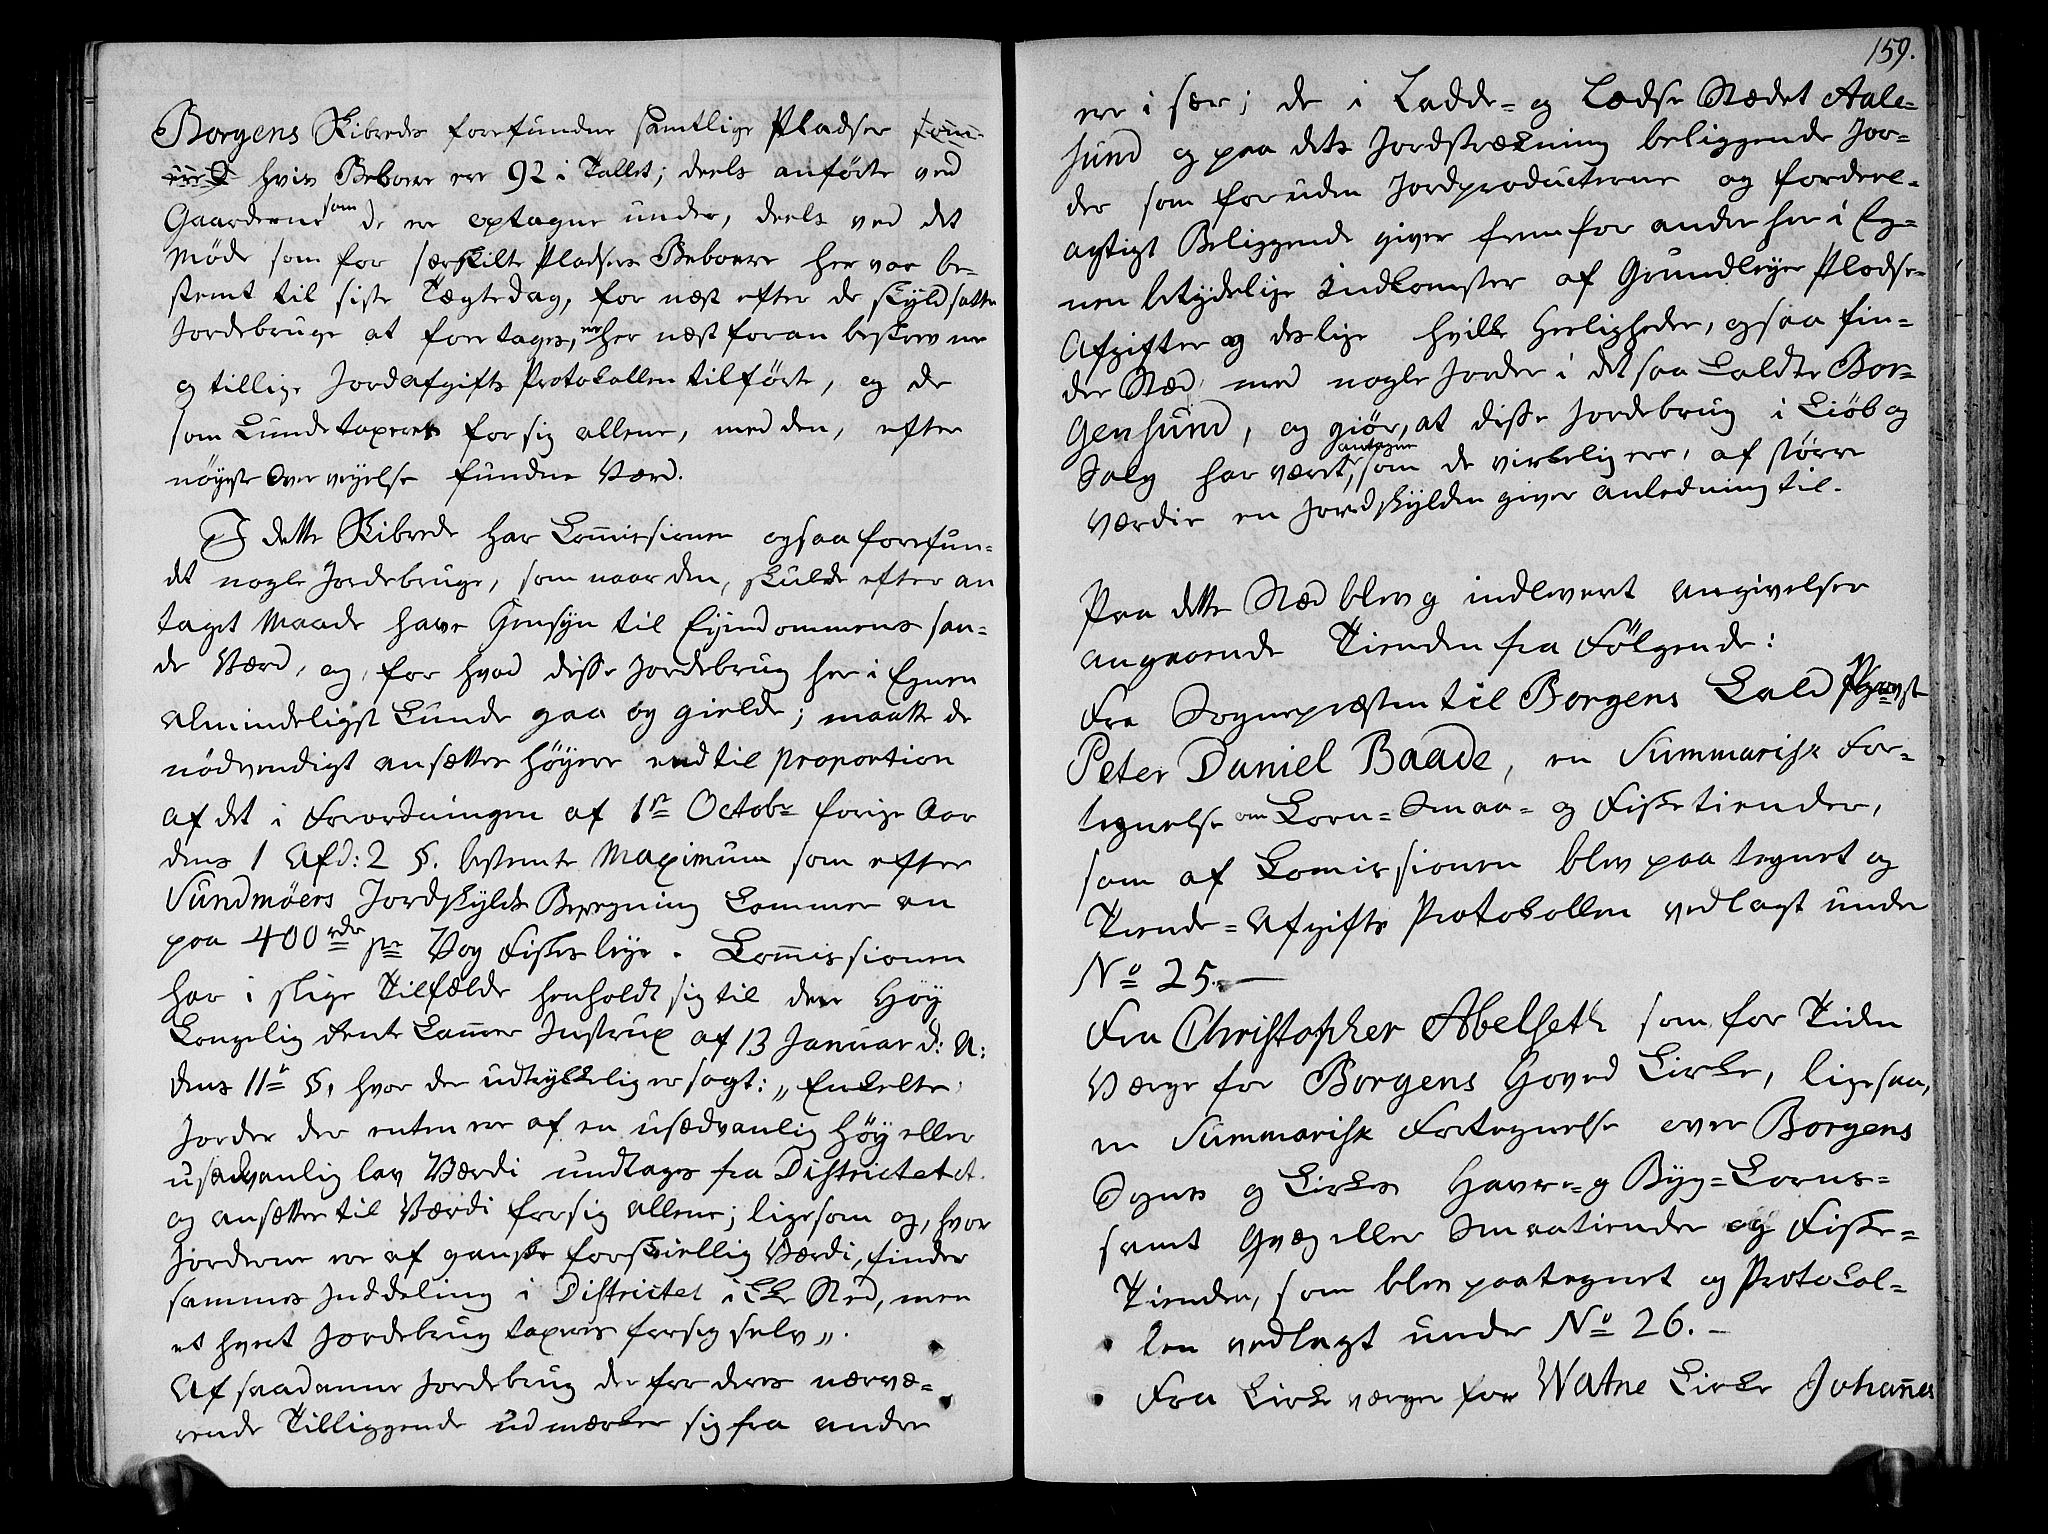 Borgens Skibreds forefundne samtlige Pladser
hvis Beboere ere 92 i Tallet; deels anförte ved
Gaarderne som de ere optagne under, deels ved det
Møde som for særskilte Pladsers Beboere her var be-
stemt til siste Tægtedag, for næst efter de skyldsatte
Jordebruge at foretages, ere her næst foran beskrevne
og tillige Jordafgifts Protokollen tilførte, og de
som kunde taxeret for sig allene, med den, efter
nøyeste Overveyelse fundne Værd.
I dette Skibrede har Commissionen ogsaa forefun-
det nogle Jordebruge, som naar den, skulde efter an
taget Maade have Hensyn til Eyendommens san-
de Værd, og, for hvad disse Jordebrug her i Egnen
Almindeligst kunde gaa og gielde; maatte de
nødvendigt ansættes høyere end til proportion
af det i Forordningen af 1ste Octobr forige Aar
dens 1 Afd: 2 §. bestemte Maximum som efter
Sundmøers Jordskylds Beregning kommer an
paa 400 rdr pr Vog Fiskes leye. Commissionen
har i slige Tilfælde henholdt sig til den Høy
Kongelig Rente Camer Instrux af 13 Januar d: A:
dens 11te §, hvor der udtrykkelig er sagt: „Enkelte
Jorder der enten ere af en usædvanlig Høy eller
usædvanlig lav Værdi undtages fra Districtet
og ansættes til Værdi for sig allene; ligesom og, hvor
Jorderne ere af ganske forskiellig Værdi, finder
sammes Inddeling i Districtet ikke Sted, men
et hvert Jordebrug taxeres for sig selv„.
Af saadanne Jordebrug der for deres nærvæ-
rende Tilliggende udmærker sig fra andre
159.
ere i sær; de i Ladde- og Lodse Stædet Aale-
sund og paa dets Jordstrækning beliggende Jor-
der som foruden Jordproducterne og fordeel-
agtigt Beliggende giver frem for andre her i Eg-
nen betydelige Indkomster af Grundleyer Pladse-
Afgifter og deslige hvilke Herligheder, ogsaa fin-
der Sted med nogle Jorder i det saa kaldte Bor-
gensund, og giør, at disse Jordebrug i Kiøb og
Salg har været antagne, som de virkelig ere, af større
Værdie en Jordskylden giver anledning til.
Paa dette Stæd blev og indleveret Angivelser
angaaende Tienden fra Følgende:
Fra Sognepræsten til Borgens Kald Provst
Peter Daniel Baade, en Summarisk For-
tegnelse om Korn- Smaa- og Fisketiender,
som af Commissionen blev paategnet og
Tiende-Afgifts Protokollen vedlagt under
No 25.
Fra Christopher Abelseth som for Tiden
Værge for Borgens Hoved Kirke, ligesaa,
en Summarisk Fortegnelse over Borgens
Sogns og Kirkes Havre- og Byg-Korns-
samt Qvæg eller Smaatiender og Fiske-
Tienden, som blev paategnet og Protokol-
len vedlagt under No 26.
Fra Kirkeværgen for Watne Kirke Johannes